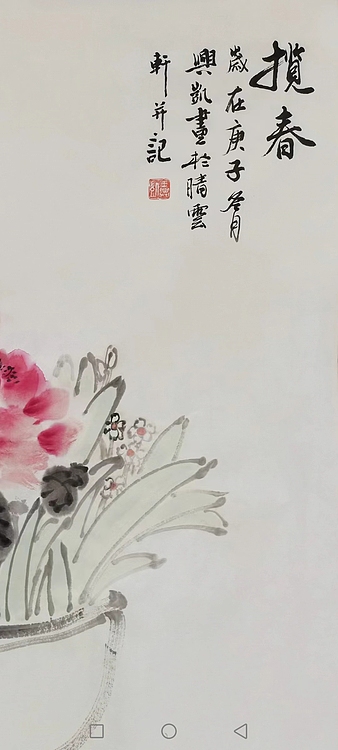 揽春
歲在庚子冬月
興凱畫於晴雲
軒并記